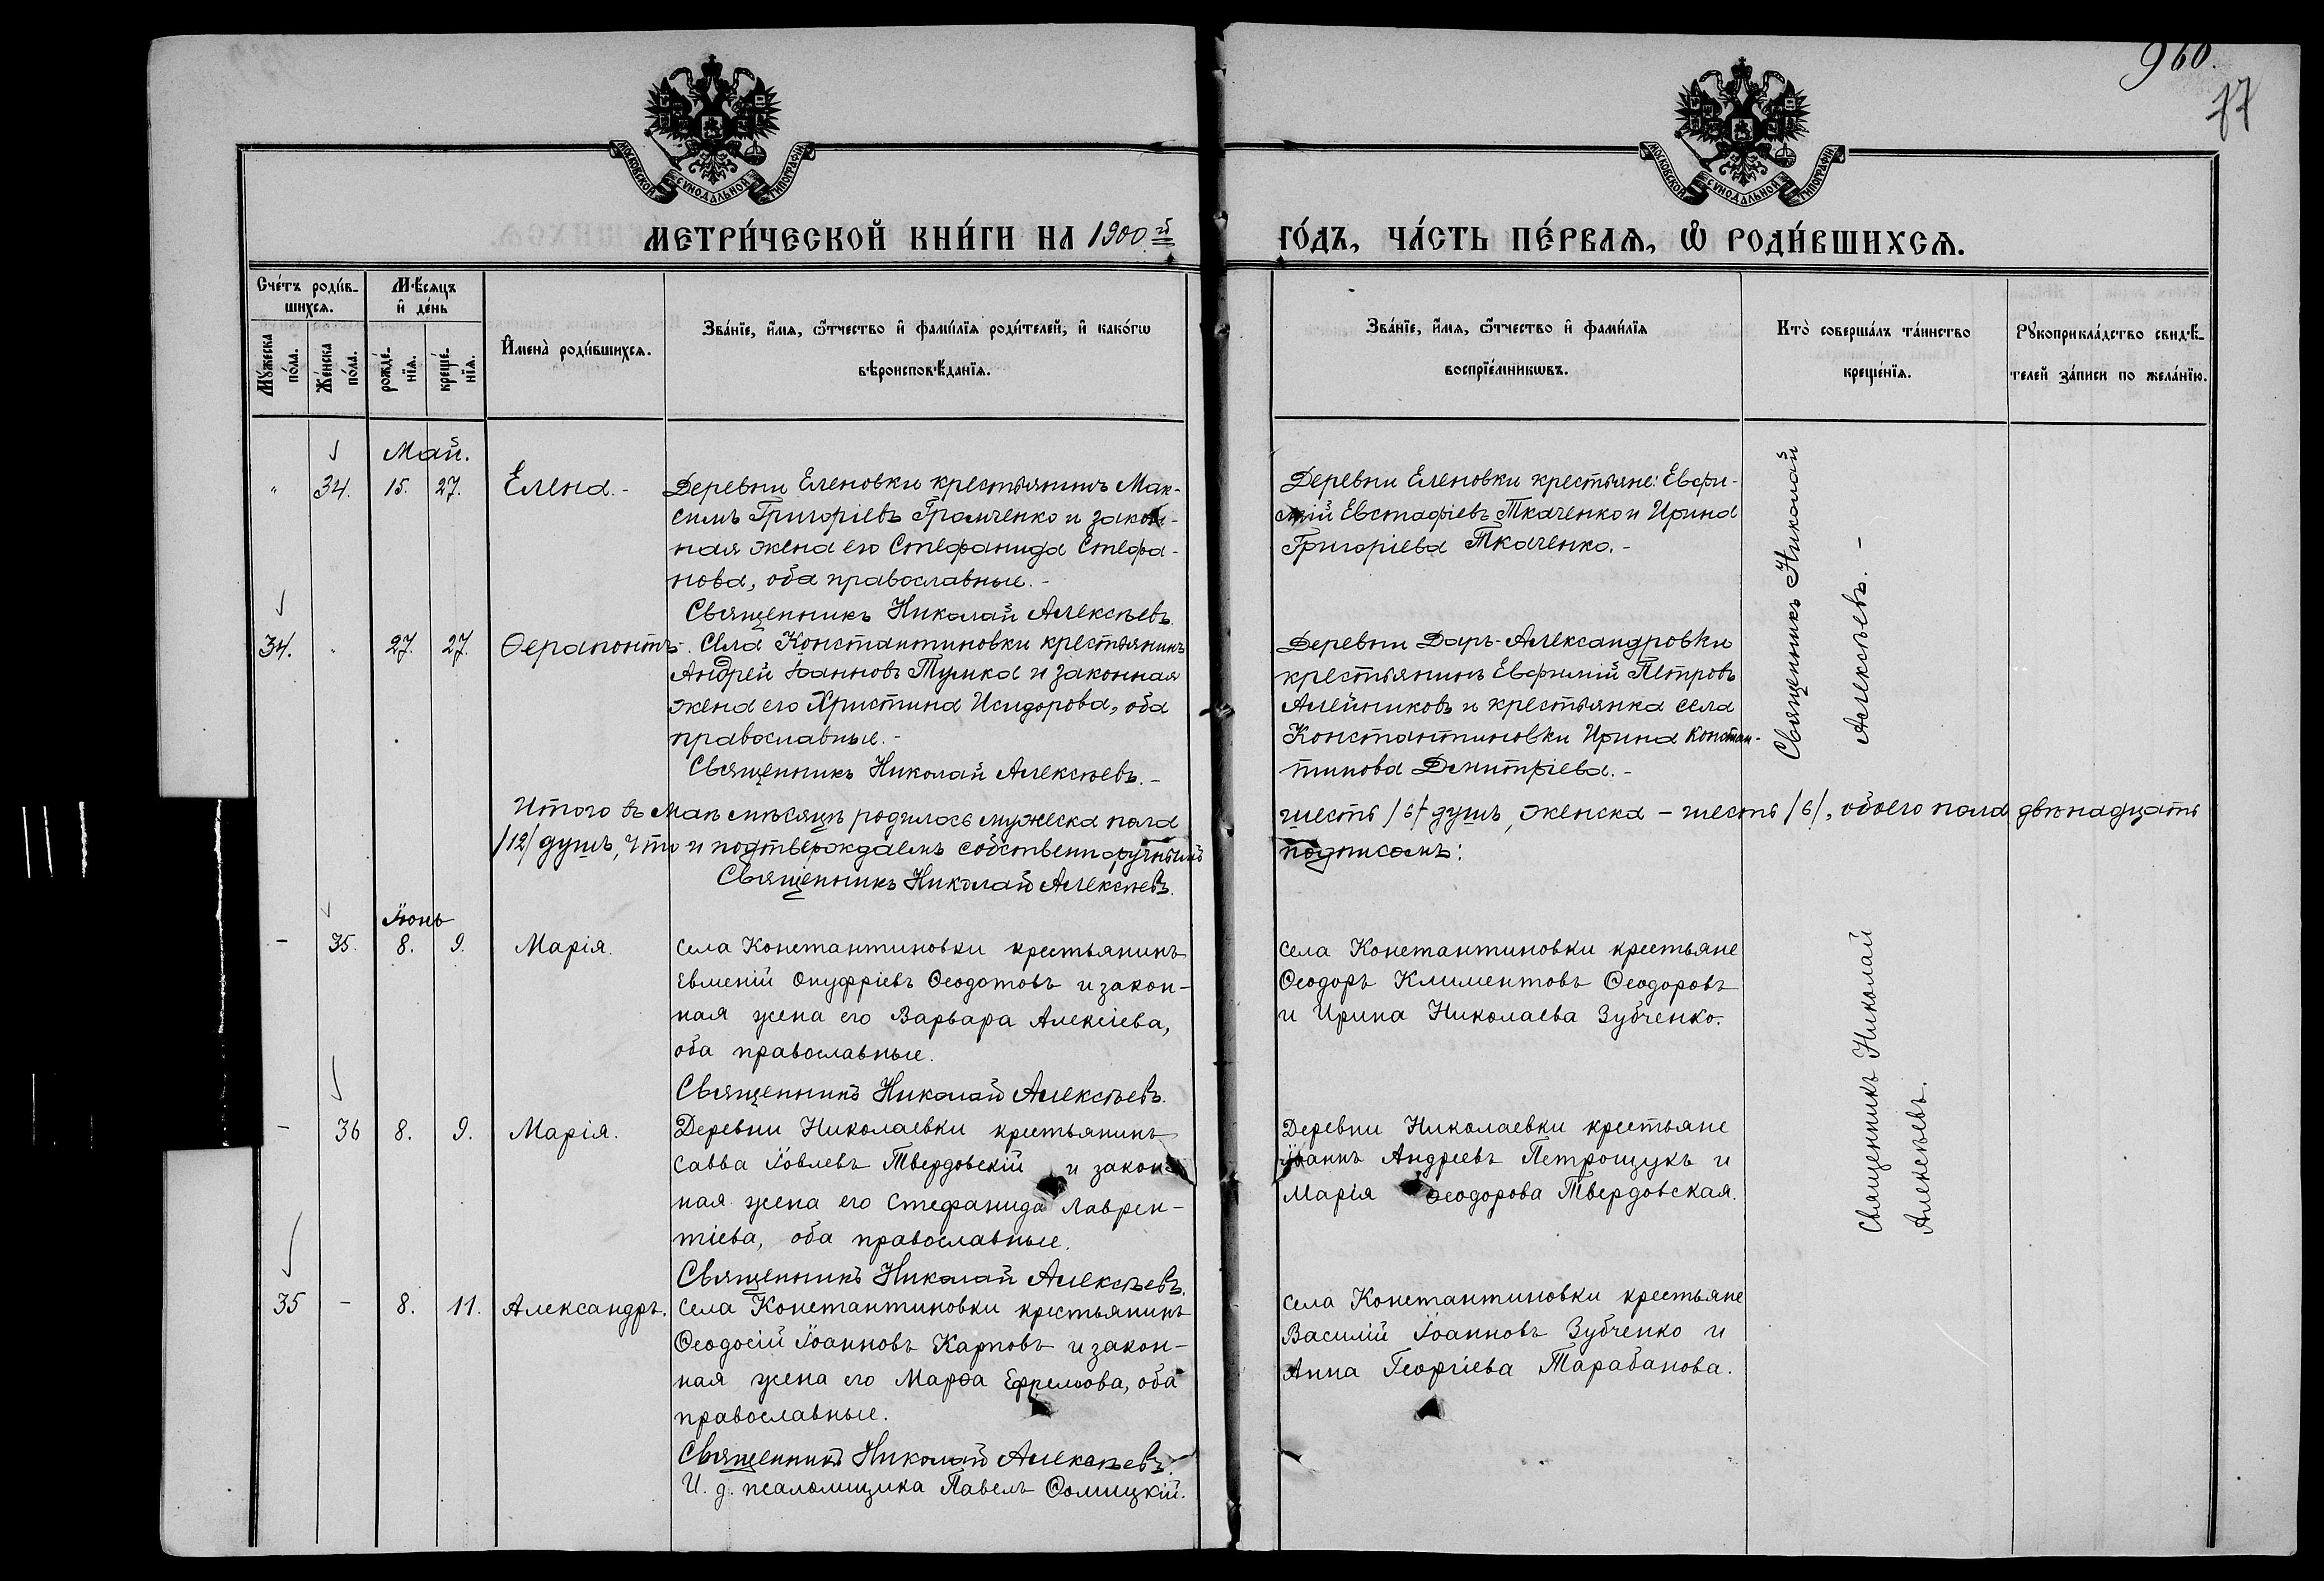 960.
77
МОСКОВСКОЙ СѴНОДАЛЬНОЙ ТИПОГРАФІИ
МОСКОВСКОЙ СѴНОДАЛЬНОЙ ТИПОГРАФІИ
МЕТРИ́ЧЕСКОЙ КНИ́ГИ НА 1900й
ГО́ДЪ, ЧА́СТЬ ПЕ́РВАѦ, Ѡ РОДИ́ВШИХСѦ.
Сче́тъ роди́в-
шихсѧ.
Мꙋ́жеска по́ла.
Же́нска по́ла.
Мѣ́сѧцъ
и҆ де́нь
рожде́-
нїѧ.
креще́-
нїѧ.
И҆мена̀ роди́вшихсѧ.
Зва́нїе, и҆́мѧ, ѻ҆́тчество и҆ фами́лїѧ роди́телей, и҆ како́гѡ
вѣроисповѣ́данїѧ.
Зва́нїе, и҆́мѧ, ѻ҆́тчество и҆ фами́лїѧ
воспрїе́мникѡвъ.
Кто̀ соверша́лъ та́инство
креще́нїѧ.
Рꙋкоприкла́дство свидѣ́-
телей за́писи по жела́нїю.
Май.
" 34. 15. 27. Елена.-
Деревни Еленовки крестьянинъ Мак-
симъ Григоріевъ Громченко и закон-
ная жена его Стефанида Стефа-
нова, оба православные.-
Священникъ Николай Алексѣевъ.
Деревни Еленовки крестьяне: Евфи-
мій Евстафіевъ Ткаченко и Ирина
Григоріева Ткаченко.-
34. " 27. 27. Ѳерапонтъ.-
Села Константиновки крестьянинъ
Андрей Іоанновъ Тумка и законная
жена его Христина Исидорова, оба
православные.-
Священникъ Николай Алексѣевъ.-
Деревни Даръ-Александровки
крестьянинъ Евфимій Петровъ
Алейниковъ и крестьянка села
Константиновки Ирина Констан-
тинова Дмитріева.-
Священникъ Николай
Алексѣевъ.-
Итого въ Маѣ мѣсяцѣ родилось мужеска пола шесть /6/ душъ, женска - шесть /6/, обоего пола двѣнадцать
/12/ душъ, что и подтверждаемъ собственноручнымъ подписомъ:
Священникъ Николай Алексѣевъ.
Іюнь
- 35. 8. 9. Марія.
Села Константиновки крестьянинъ
Евменій Онуфріевъ Ѳеодотовъ и закон-
ная жена его Варвара Алексіева,
оба православные.
Священникъ Николай Алексѣевъ.
Села Константиновки крестьяне
Ѳеодоръ Климентовъ Ѳеодоровъ
и Ирина Николаева Зубченко.
- 36 8. 9. Марія.
Деревни Николаевки крестьянинъ
Савва Іовлевъ Твердовскій и закон-
ная жена его Стефанида Лаврен-
тіева, оба православные.
Священникъ Николай Алексѣевъ.
Деревни Николаевки крестьяне
Іоаннъ Андреевъ Петрощукъ и
Марія Ѳеодорова Твердовская.
35 - 8. 11. Александръ.
Села Константиновки крестьянинъ
Ѳеодосій Іоанновъ Карповъ и закон-
ная жена его Марѳа Ефремова, оба
православные.
Священникъ Николай Алексѣевъ.
И. д. псаломщика Павелъ Сомицкій.
Села Константиновки крестьяне
Василій Іоанновъ Зубченко и
Анна Георгіева Тарабанова.
Священникъ Николай
Алексѣевъ.